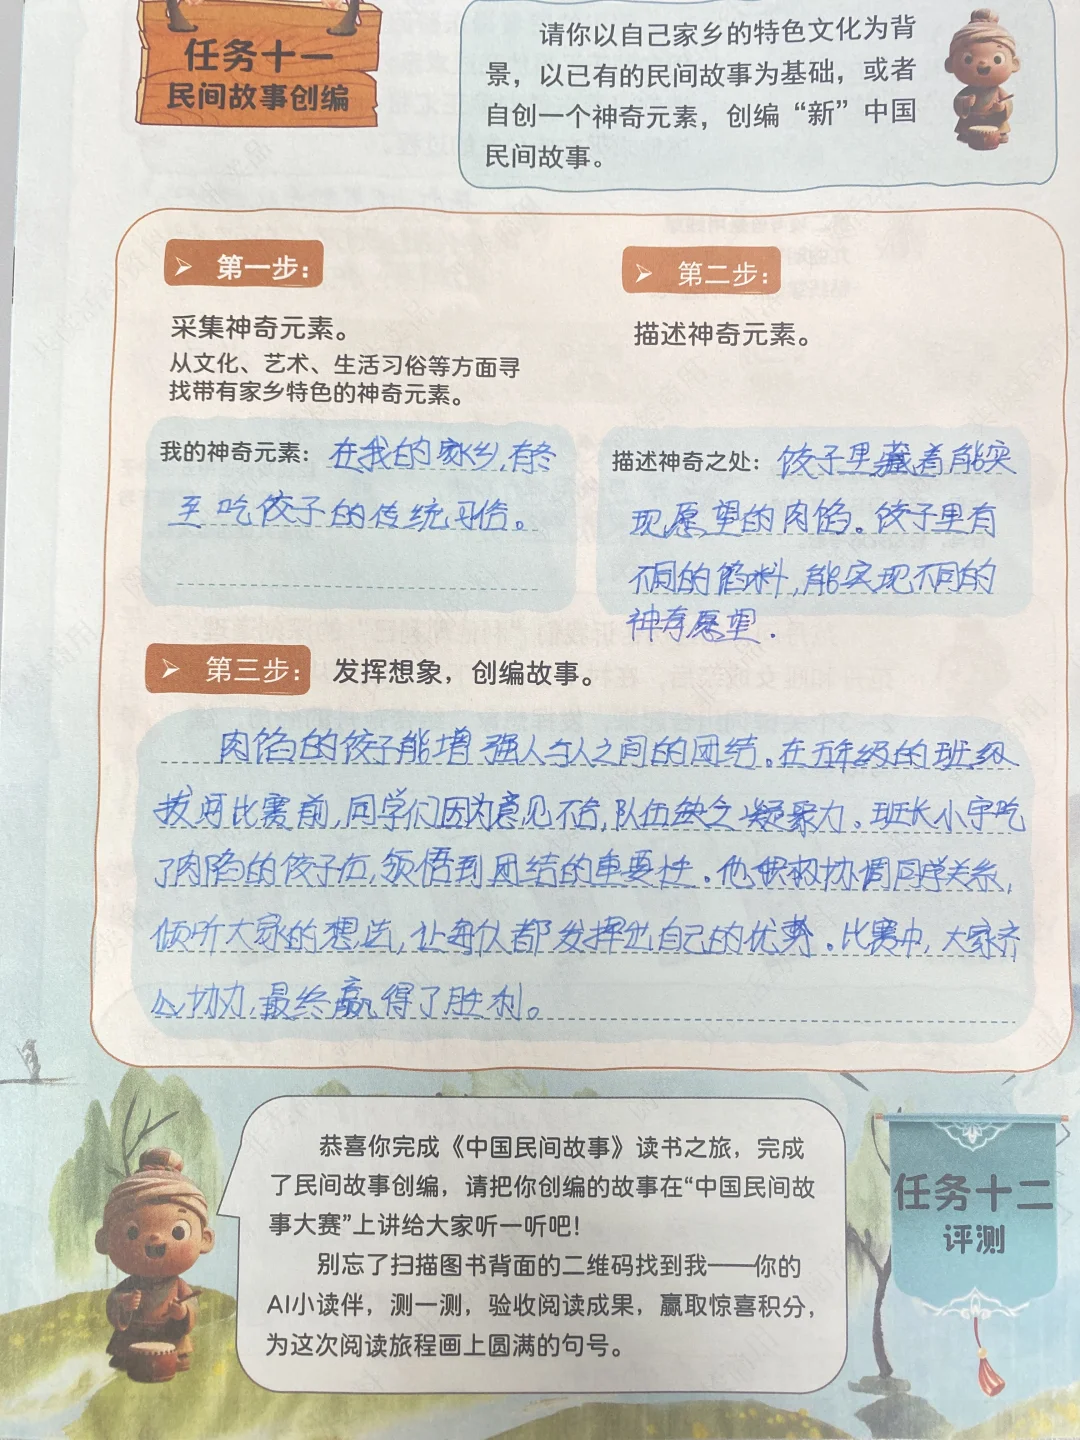 任务十一
民间故事创编
请你以自己家乡的特色文化为背
景，以已有的民间故事为基础，或者
自创一个神奇元素，创编“新”中国
民间故事。
第一步：
采集神奇元素。
从文化、艺术、生活习俗等方面寻
找带有家乡特色的神奇元素。
我的神奇元素：在我的家乡，有冬
至吃饺子的传统习俗。
第二步：
描述神奇元素。
描述神奇之处：饺子里藏着能实
现愿望的肉馅。饺子里有
不同的馅料，能实现不同的
神奇愿望．
第三步：发挥想象，创编故事。
肉馅的饺子能增强人与人之间的团结。在五年级的班级
拔河比赛前，同学们因为意见不合，队伍缺乏凝聚力。班长小宇吃
了肉馅的饺子后，领悟到团结的重要性．他积极协调同学关系，
倾听大家的想法，让每队都发挥出自己的优势．比赛中，大家齐
心协力，最终赢得了胜利。
恭喜你完成《中国民间故事》读书之旅，完成
了民间故事创编，请把你创编的故事在“中国民间故
事大赛”上讲给大家听一听吧！
别忘了扫描图书背面的二维码找到我——你的
AI小读伴，测一测，验收阅读成果，赢取惊喜积分，
为这次阅读旅程画上圆满的句号。
任务十二
评测